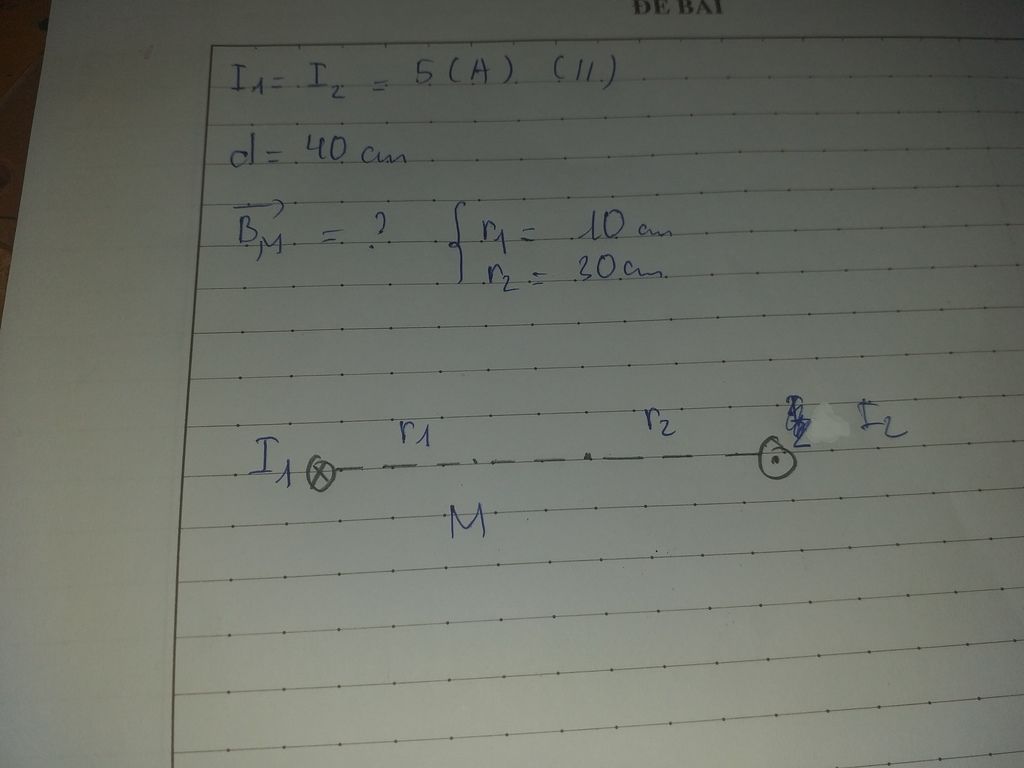 ĐỀ BÀI
I₁ = I₂ = 5 (A). (//)
d = 40 cm
B⃗M = ? { r₁ = 10 cm
r₂ = 30 cm
r₁ r₂ I₂
I₁
M